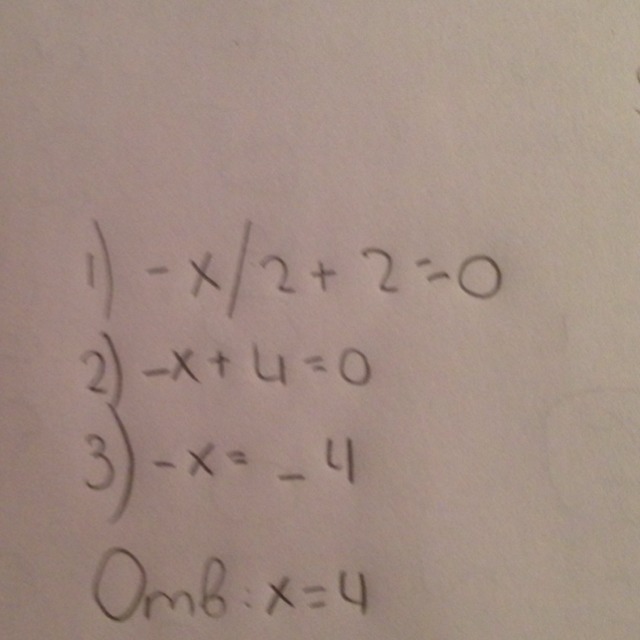 1) -x/2 + 2 = 0
2) -x + 4 = 0
3) -x = -4
Отв: x = 4